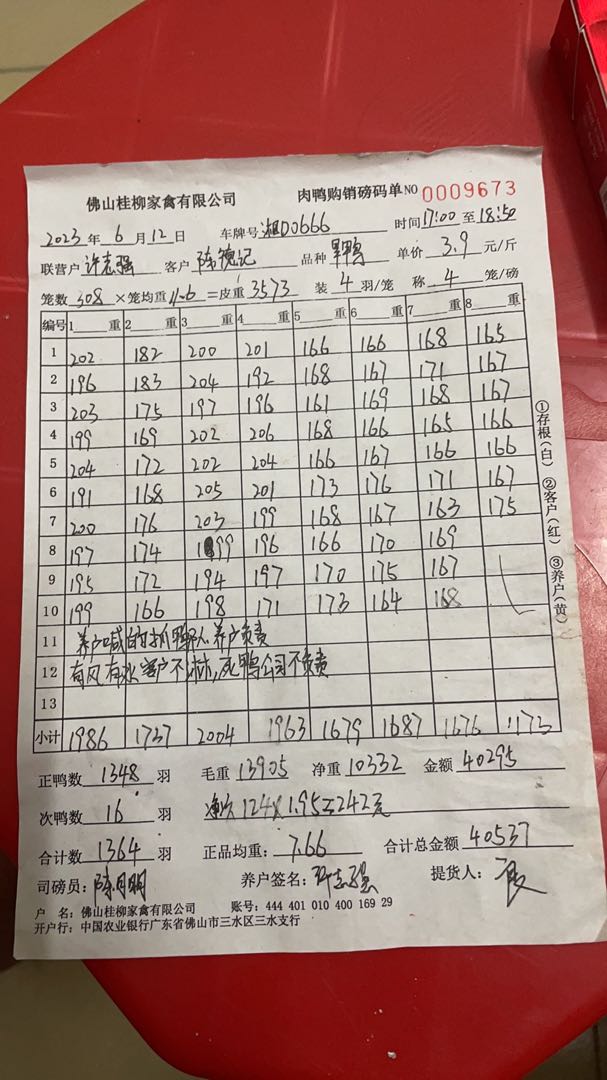 佛山桂柳家禽有限公司 肉鸭购销磅码单 NO 0009673
2023年6月12日 车牌号 湘D0666 时间17:00至18:50
联营户 许志强 客户 陈德记 品种 单价 3.9 元/斤
笼数 308 ×笼均重 11.6 =皮重 3573 装 4 羽/笼 称 4 笼/磅
编号 1 重 2 重 3 重 4 重 5 重 6 重 7 重 8 重
1 202 182 200 201 166 166 168 165
2 196 183 204 192 168 167 171 167
3 203 175 197 196 161 169 168 167
4 199 169 202 206 168 166 165 166
5 204 172 202 204 166 167 166 166
6 191 168 205 201 173 176 171 167
7 200 176 203 199 168 167 163 175
8 197 174 199 196 166 170 169
9 195 172 194 197 170 175 167
10 199 166 198 171 173 164 168
11 养户喊的抓鸭队养户负责
12 有风有水客户不淋,死鸭公司不负责
13
小计 1986 1737 2004 1963 1679 1687 1676 1173
正鸭数 1348 羽 毛重 13905 净重 10332 金额 40295
次鸭数 16 羽 124×1.95=242元
合计数 1364 羽 正品均重: 7.66 合计总金额 40537
司磅员: 陈月明 养户签名: 许志强 提货人:
户 名: 佛山桂柳家禽有限公司 账号: 444 401 010 400 169 29
开户行: 中国农业银行广东省佛山市三水区三水支行
①存根(白) ②客户(红) ③养户(黄)